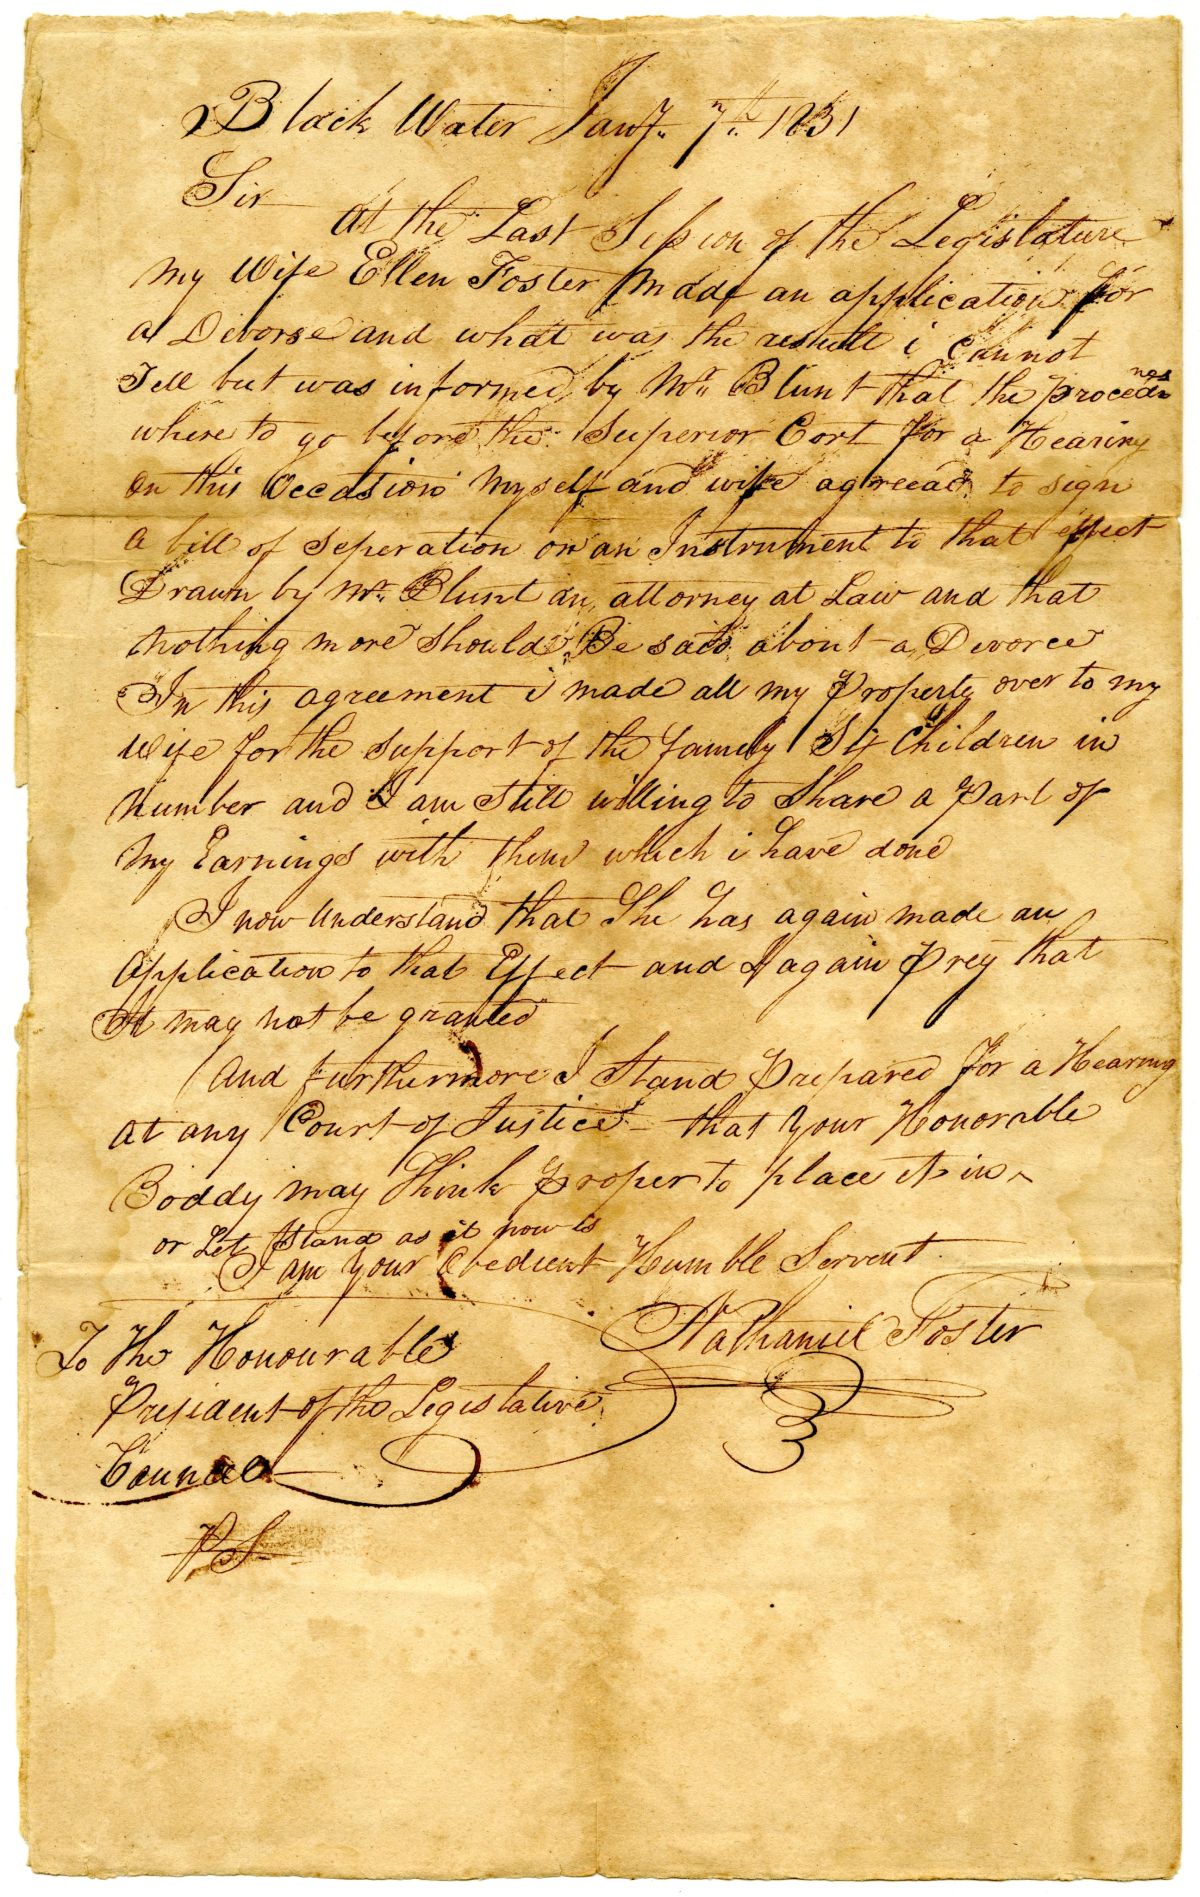 Black Water Jany. 7th. 1831
Sir
At the Last Session of the Legislature
my Wife Ellen Foster Made an application for
a Divorse and what was the resultt i Cannot
Tell but was informed by Mr. Blunt that the proceedngs
where to go before the Superior Cort for a Hearing
On this Occasion Myself and wife agreead to sign
a bill of Seperation or an Instrument to that effect
Drawn by Mr. Blunt an attorney at Law and that
nothing more should Be said about a Devorce
In this agreement i made all my Property over to my
Wife for the support of the family Six Children in
Number and I am Still willing to Share a Part of
My Earnings with them which i have done
I now Understand that She has again made an
Application to that Effect and I again Prey that
It may not be granted
And furthermore I Stand Prepared for a Hearing
at any Court of Justice that Your Honorable
Boddy may Think Proper to place it in
or Let Stand as it now is
I am Your Obedient Humble Servent
Nathaniel Foster
To The Honourable
President of the Legislative
Council
PS